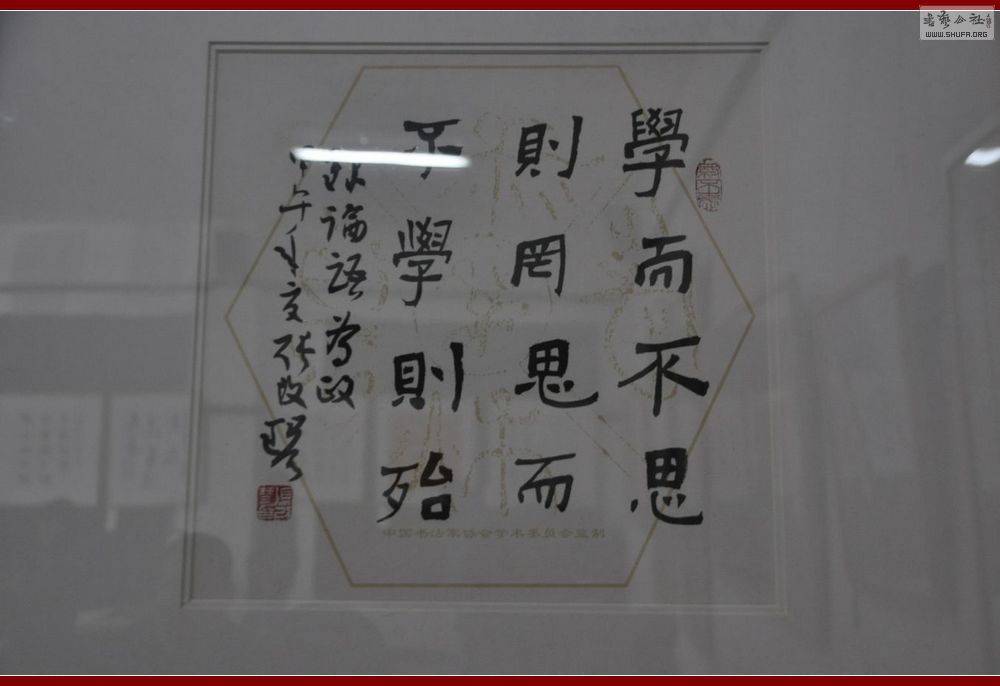 學而不思
則罔思而
不學則殆
論語為政
甲午年夏張改琴
中国书法家协会学术委员会监制
书艺公社
WWW.SHUFA.ORG